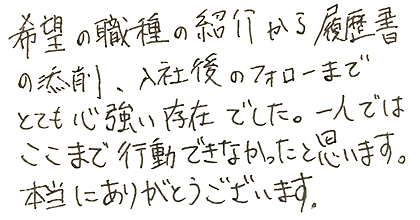 希望の職種の紹介から履歴書
の添削、入社後のフォローまで
とても心強い存在でした。一人では
ここまで行動できなかったと思います。
本当にありがとうございます。